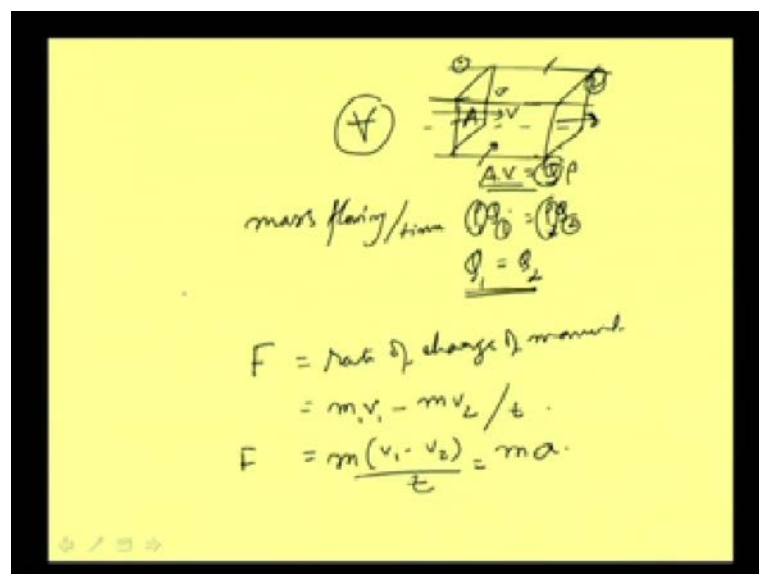 ①
②
∀
A → V
A.V = Q ρ
mass flowing/time (ρQ)① = (ρQ)②
Q₁ = Q₂
F = rate of change of
= m₁v₁ - mv₂ / t.
F = m(v₁ - v₂) / t = ma.